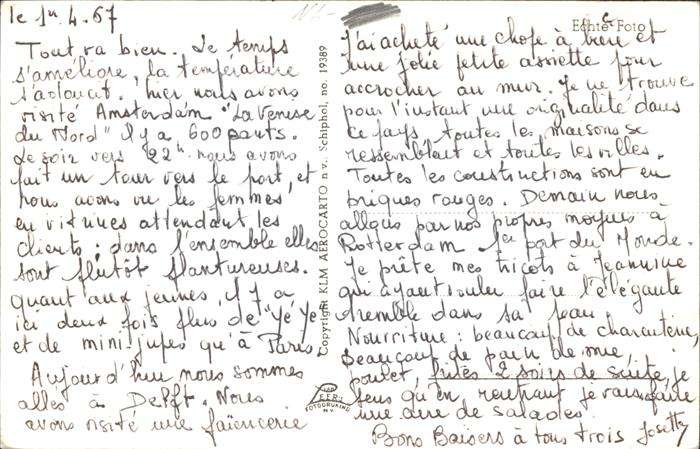 le 1er 4.67
Tout va bien. Le temps
s'améliore, la température
s'adoucit. hier nous avons
visité Amsterdam "La Venise
du Nord" Il y a 600 ponts.
Le soir vers 22h nous avons
fait un tour vers le port, et
nous avons vu les femmes
en vitrines attendant les
clients ; dans l'ensemble elles
sont plutôt plantureuses.
Quant aux jeunes, il y a
ici deux fois plus de "Yé Yé"
et de mini-jupes qu'à Paris.
Aujourd'hui nous sommes
allés à Delft. Nous
avons visité une faïencerie
Copyright KLM AEROCARTO n.v. Schiphol, no. 19389
Echte Foto
J'ai acheté une chope à bière et
une jolie petite assiette pour
accrocher au mur. Je ne trouve
pour l'instant une originalité dans
ce pays toutes les maisons se
ressemblent et toutes les villes.
Toutes les constructions sont en
briques rouges. Demain nous
allons par nos propres moyens à
Rotterdam 1er port du Monde.
Je prête mes tricots à Jeannine
qui ayant voulu faire l'élégante
tremble dans sa peau.
Nourriture : beaucoup de charcuterie,
beaucoup de pain de mie,
poulet, frites 2 soirs de suite, je
sens qu'en rentrant je vais faire
une cure de salades.
Bons Baisers à tous trois Josette